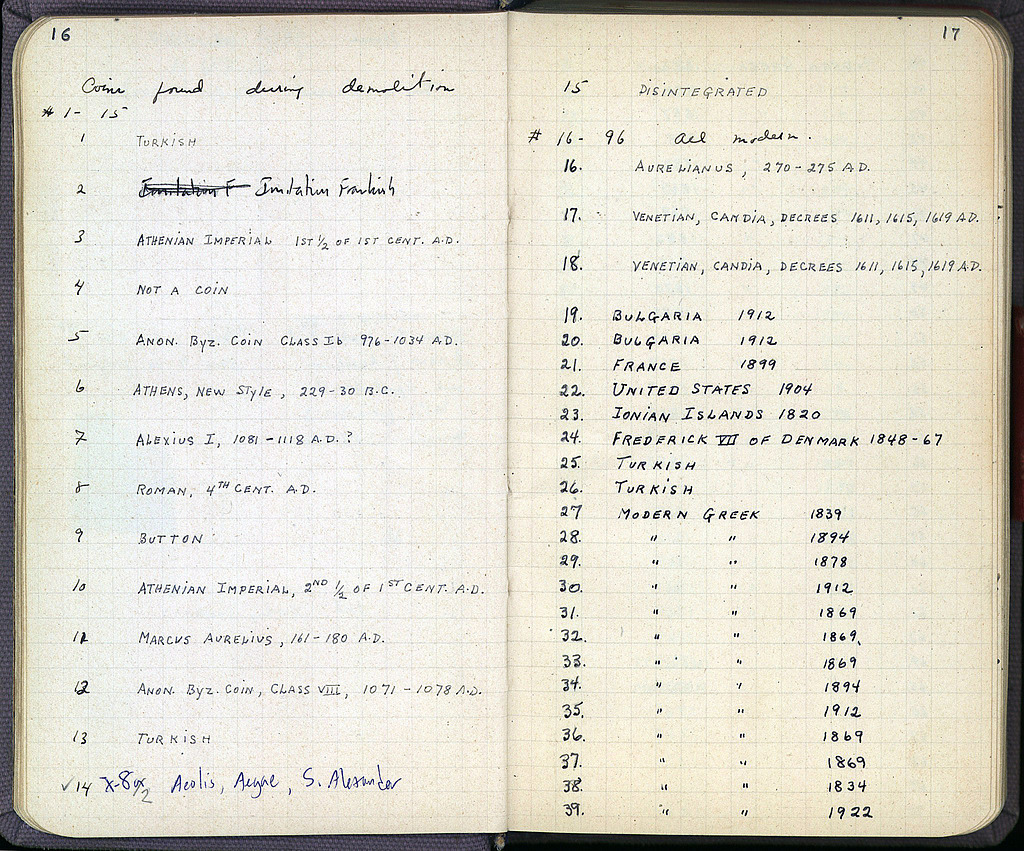 16
Coins found during demolition
# 1 - 15
1 TURKISH
2 Imitation F Imitation Frankish
3 ATHENIAN IMPERIAL 1ST 1/2 OF 1ST CENT. A.D.
4 NOT A COIN
5 ANON. BYZ. COIN CLASS Ib 976-1034 A.D.
6 ATHENS, NEW STYLE, 229-30 B.C.
7 ALEXIUS I, 1081-1118 A.D. ?
8 ROMAN, 4TH CENT. A.D.
9 BUTTON
10 ATHENIAN IMPERIAL, 2ND 1/2 OF 1ST CENT. A.D.
11 MARCUS AURELIUS, 161-180 A.D.
12 ANON. BYZ. COIN, CLASS VIII, 1071-1078 A.D.
13 TURKISH
✓14 Aeolis, Aegae, S. Alexander
17
15 DISINTEGRATED
# 16 - 96 all modern.
16. AURELIANUS, 270-275 A.D.
17. VENETIAN, CANDIA, DECREES 1611, 1615, 1619 A.D.
18. VENETIAN, CANDIA, DECREES 1611, 1615, 1619 A.D.
19. BULGARIA 1912
20. BULGARIA 1912
21. FRANCE 1899
22. UNITED STATES 1904
23. IONIAN ISLANDS 1820
24. FREDERICK VII OF DENMARK 1848-67
25. TURKISH
26. TURKISH
27 MODERN GREEK 1839
28. " " 1894
29. " " 1878
30. " " 1912
31. " " 1869
32. " " 1869
33. " " 1869
34. " " 1894
35. " " 1912
36. " " 1869
37. " " 1869
38. " " 1834
39. " " 1922